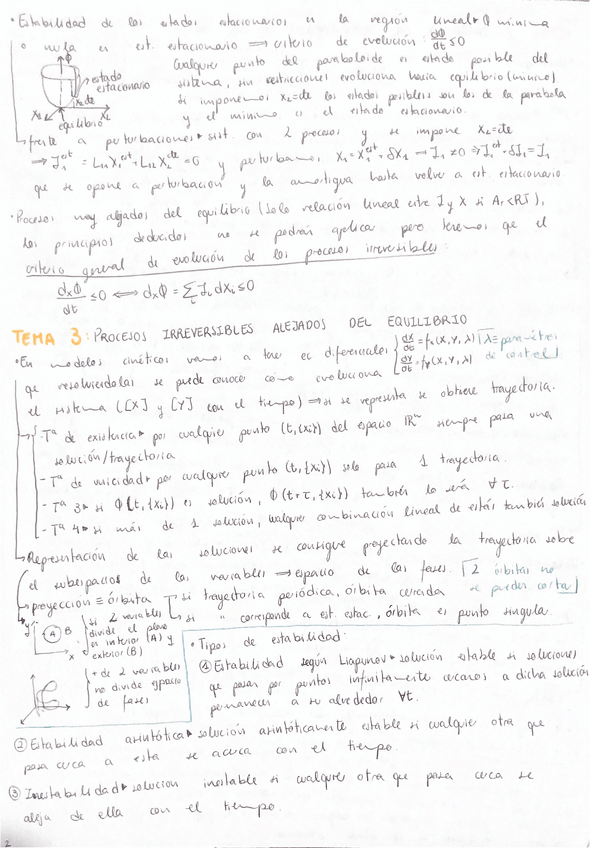 • Estabilidad de los estados estacionarios en la región lineal → Φ mínima
o nula en est. estacionario ⟹ criterio de evolución: dΦ/dt ≤ 0
Cualquier punto del paraboloide es estado posible del
sistema, sin restricciones evoluciona hacia equilibrio (mínimo)
Si imponemos X₂=cte los estados posibles son los de la parábola
y el mínimo es el estado estacionario.
Φ
estado
estacionario
X₂cte
X₂
X₁
equilibrio
frente a perturbaciones → sist. con 2 procesos y se impone X₂=cte
⟹ J₁ᵉˢᵗ = L₁₁X₁ᵉˢᵗ + L₁₂X₂ᶜᵗᵉ = 0 y perturbamos X₁ = X₁ᵉˢᵗ + δX₁ → J₁ ≠ 0 ⟹ J₁ᵉˢᵗ + δJ₁ = J₁
que se opone a perturbación y la amortigua hasta volver a est. estacionario.
• Procesos muy alejados del equilibrio (solo relación lineal entre J y X si Ar<RT),
los principios deducidos no se podrán aplicar pero tenemos que el
criterio general de evolución de los procesos irreversibles:
dₓΦ/dt ≤ 0 ⟺ dₓΦ = Σᵢ Jᵢ dXᵢ ≤ 0
TEMA 3: PROCESOS IRREVERSIBLES ALEJADOS DEL EQUILIBRIO
• En modelos cinéticos vamos a tener ec diferenciales { dX/dt = fₓ(X,Y,λ) λ ≡ parámetro
que resolviéndolas se puede conocer como evoluciona { dY/dt = fᵧ(X,Y,λ) de control
el sistema ([X] y [Y] con el tiempo) ⟹ si se representa se obtiene trayectoria.
- Tª de existencia → por cualquier punto (t,{xi}) del espacio ℝⁿ siempre pasa una
solución/trayectoria
- Tª de unicidad → por cualquier punto (t,{xi}) solo pasa 1 trayectoria.
- Tª 3 → si Φ(t,{xi}) es solución, Φ(t+τ,{xi}) también lo será ∀τ.
- Tª 4 → si más de 1 solución, cualquier combinación lineal de estas también solución
Representación de las soluciones se consigue proyectando la trayectoria sobre
el subespacio de las variables ⟹ espacio de las fases. 2 órbitas no
proyección ≡ órbita si trayectoria periódica, órbita cerrada se pueden cortar
si " corresponde a est. estac., órbita es punto singular.
y A B x
si 2 variables
divide el plano
en interior (A) y
exterior (B)
+ de 2 variables
no divide espacio
de fases
• Tipos de estabilidad:
① Estabilidad según Liapunov → solución estable si soluciones
que pasan por puntos infinitamente cercanos a dicha solución
permanecen a su alrededor ∀t.
② Estabilidad asintótica → solución asintóticamente estable si cualquier otra que
pasa cerca a esta se acerca con el tiempo.
③ Inestabilidad → solución inestable si cualquier otra que pasa cerca se
aleja de ella con el tiempo.
2